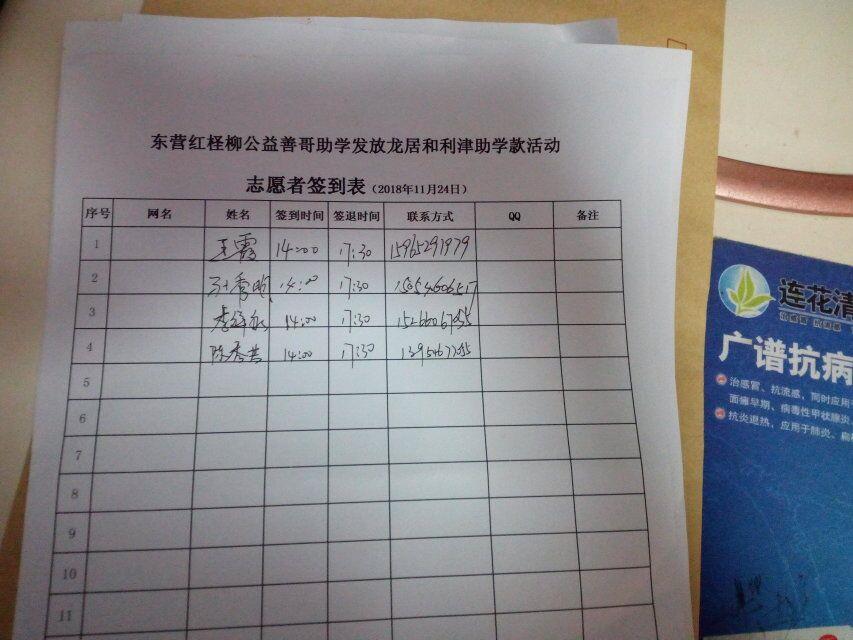 东营红柽柳公益善哥助学发放龙居和利津助学款活动
志愿者签到表（2018年11月24日）
序号 网名 姓名 签到时间 签退时间 联系方式 QQ 备注
1 王霞 14:00 17:30 15965291979
2 14:00 17:30
3 14:00 17:30
4 14:00 17:30
5
6
7
8
9
10
11
连花清
广谱抗病
治感冒、抗流感，同时应用
面瘫早期、病毒性甲状腺炎
抗炎退热，应用于肺炎、扁